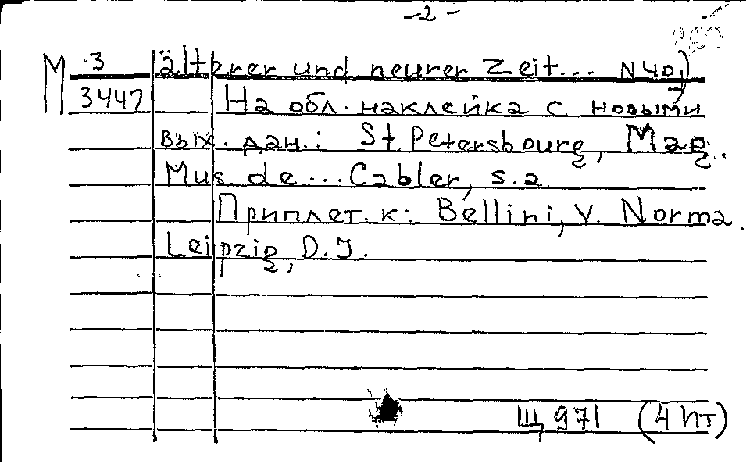 -2-
М 3 älterer und neurer Zeit... N40)
3447 На обл. наклейка с новыми
вых. дан.: St. Petersbourg, Mag.
Mus de... Cabler, s.a
Приплет. к: Bellini, V. Norma.
Leipzig, D.J.
Щ 971 (4 нт)